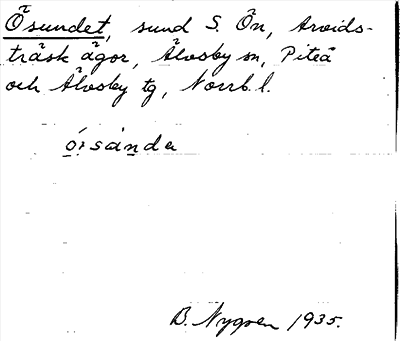 Ösundet, sund S. Ön, Arvids-
träsk ägor, Älvsby sn, Piteå
och Älvsby tg, Norrb. l.
B. Nygren 1935.